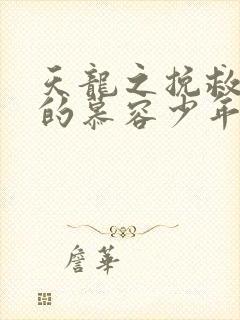 天龍之挽救
的慕容少年
詹華